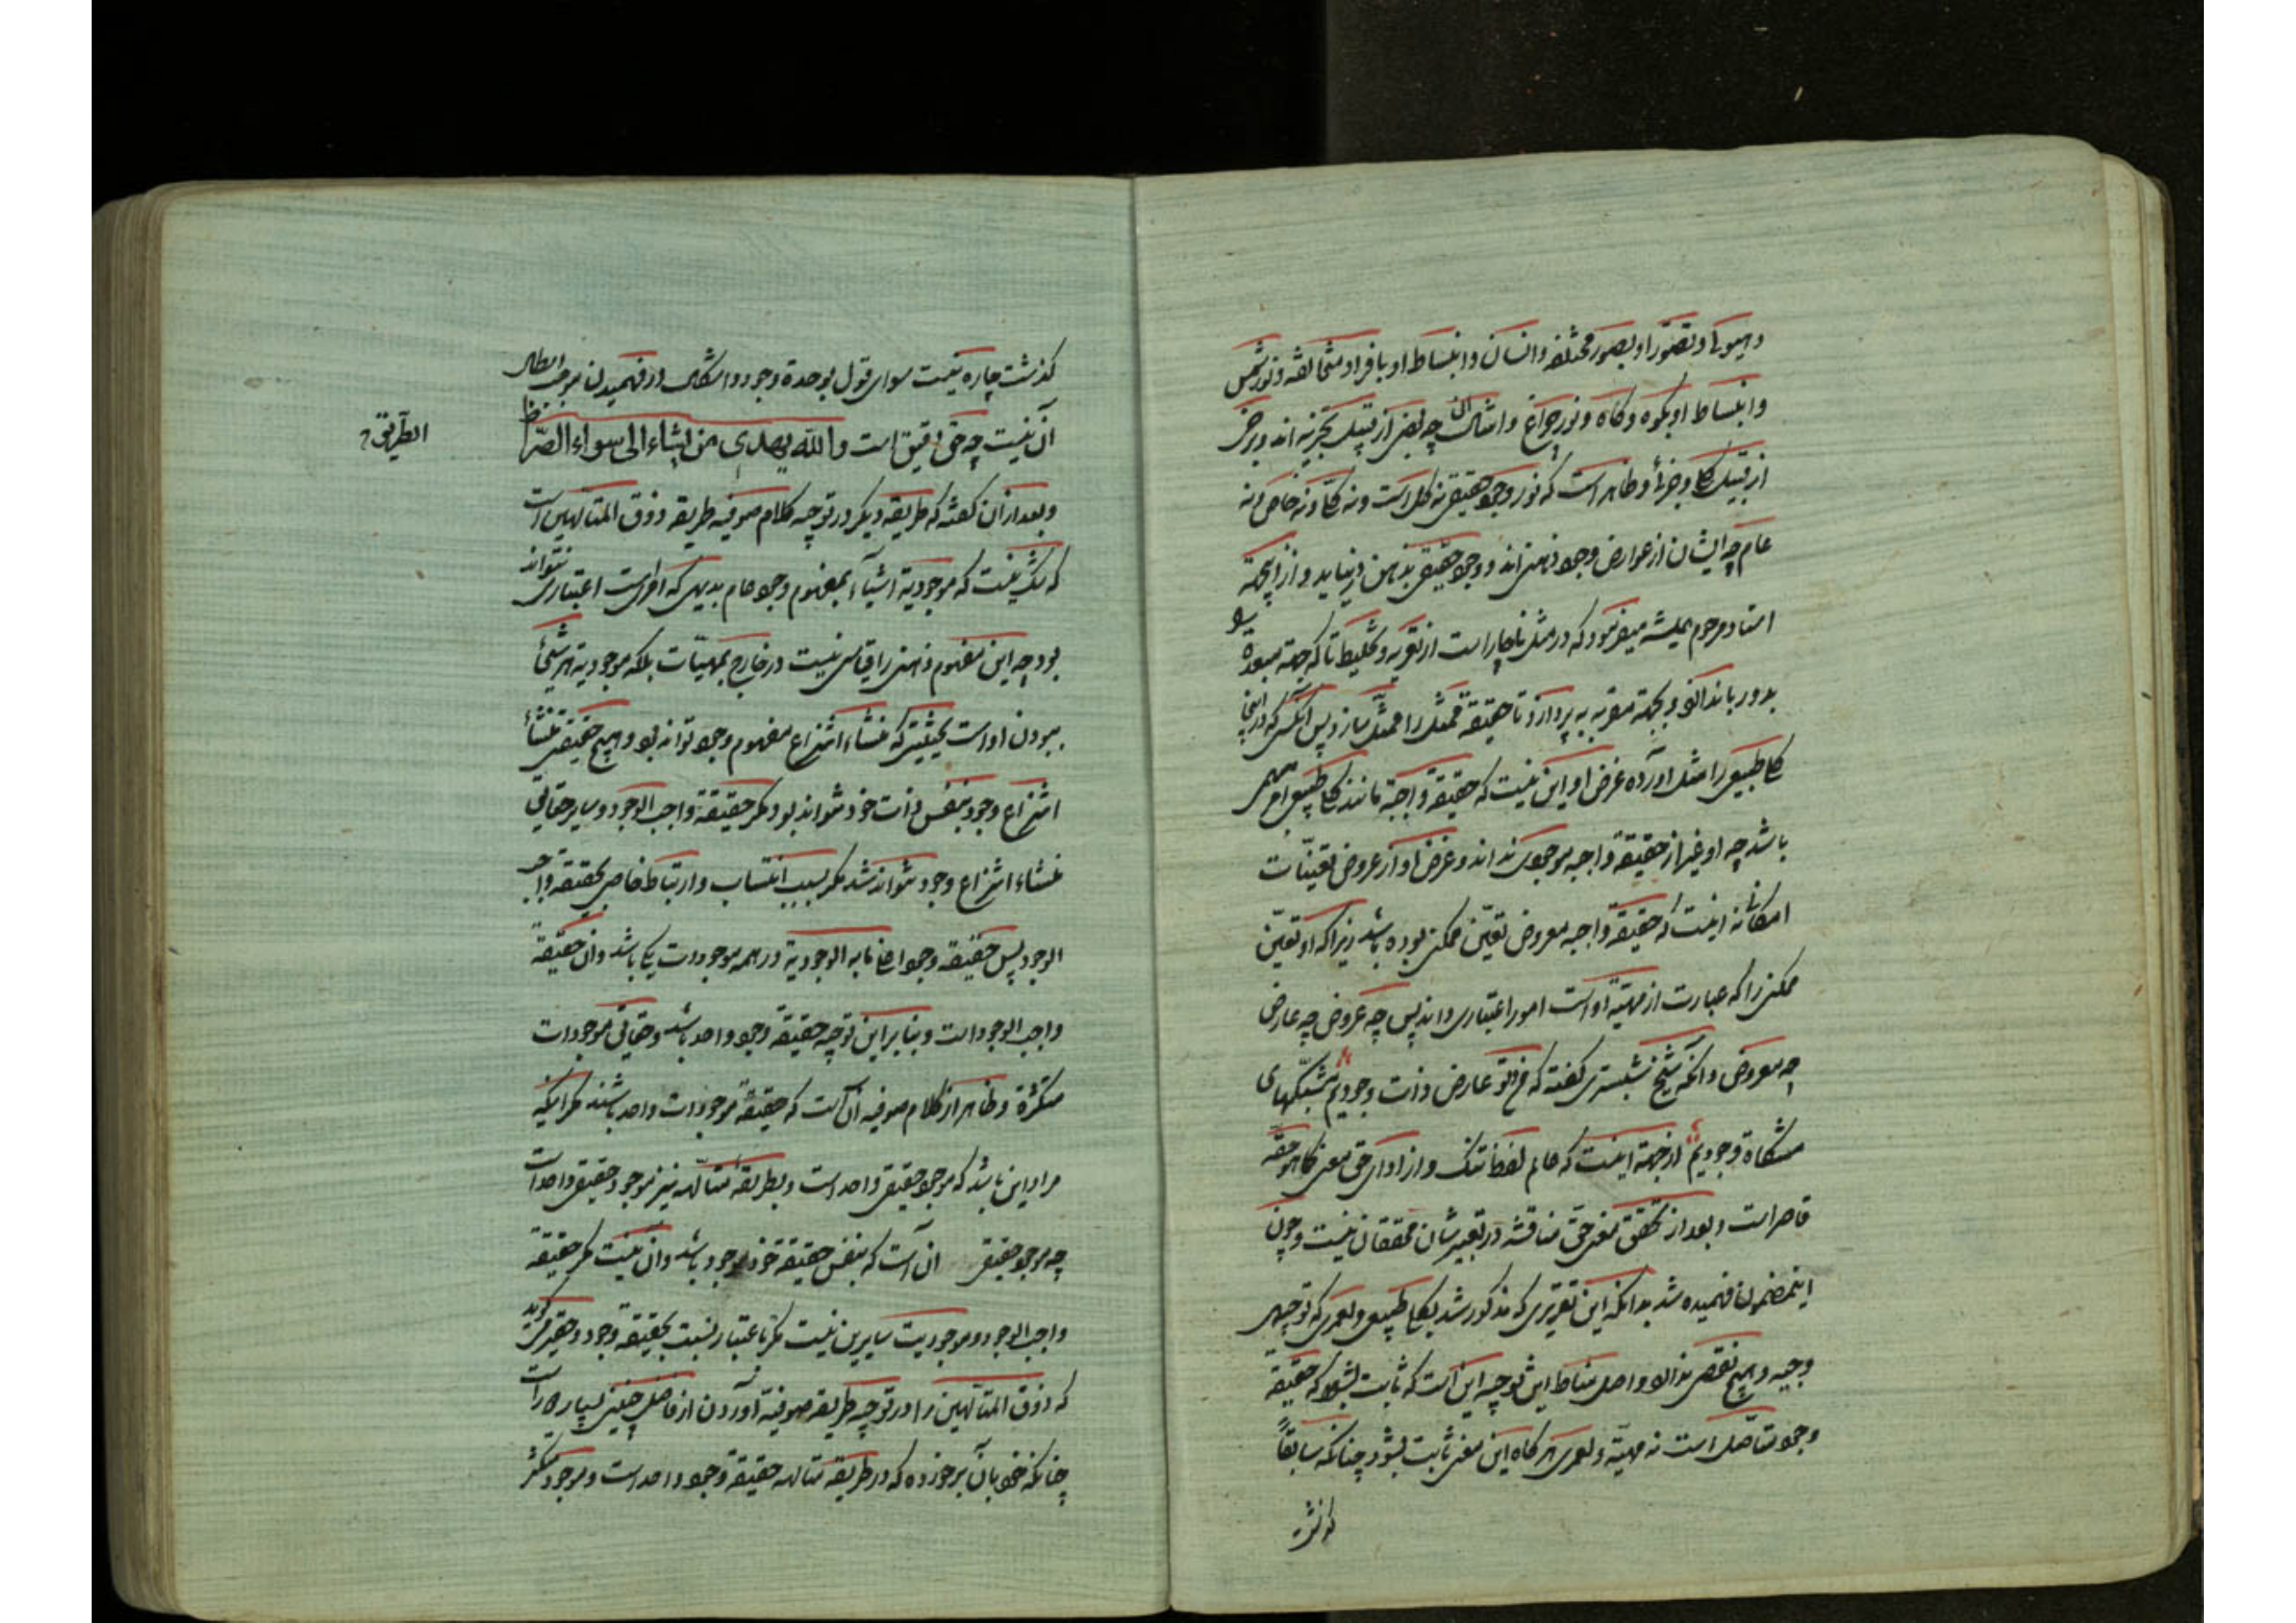 وهیولا و تصور او بصور مختلفه و انسان و انبساط او بافراد متخالفه و نور شمس
و انبساط او بکوه و کاه و نور چراغ و امثال ان چه بعضی از قبیل تجزیه اند و برخی
از قبیل کلی و جزئی و ظاهر است که نور وجود حقیقی نه کل است و نه کلی و نه خاص و نه
عام چه ایشان از عوارض وجود ذهنی اند و وجود حقیقی بذهن در نیاید و از اینجهة
استاد مرحوم همیشه میفرمود که در مثل ناچار است از تقریه و تخلیط تا که جهة مبعده
بدور باندازد و بجهة مقربه به پردازد تا حقیقة ممثل را ممثل سازد پس آنکس که در اینجا
کلی طبیعی را مثل اورده غرض او این نیست که حقیقة واجبه مانند کلی طبیعی امر مبهمی
باشد چه او غیر از حقیقة واجبه موجودی نداند و غرض او از عروض تعینات
امکانیه اینست که حقیقة واجبه معروض تعین ممکن بوده باشد زیرا که او تعین
ممکن را که عبارت از مهیة او است امور اعتباری داند پس چه عروض چه عارض
چه معروض و انکه شیخ شبستری گفته که من و تو عارض ذات وجودیم مشبکهای
مشکاة وجودیم از جهة اینست که عالم لفظ تنک و از ادای حق معنی کما هو حقه
قاصر است و بعد از تحقق معنی حق مناقشه در تعبیر شان محققان نیست و چون
اینمضمون فهمیده شد بدانکه این تقریری که مذکور شد بکلی طبیعی ولعمری که توجیهی
وجیه و هیچ نقص ندارد و اصل مناط این توجیه این است که ثابت بشود که حقیقة
وجود متاصل است نه مهیة ولعمری هر کاه این معنی ثابت بشود چنانکه سابقاً
گذشت
گذشت چاره نیست سوای قول بوحدة وجود و اشکالی در فهمیدن موجب ابطال
آن نیست چه حق دقیق است والله یهدی من یشاء الی سواء الصراط
الطریق
و بعد از آن گفته که طریقه دیگر در توجیه کلام صوفیه طریقه ذوق المتالهین است
که شک نیست که موجودیة اشیآء بمفهوم وجود عام بدیهی که امریست اعتباری نتواند
بود چه این مفهوم ذهنی را قیامی نیست در خارج بمهیات بلکه موجودیة هر شیئ
ببودن او است بحیثیتی که منشاء انتزاع مفهوم وجود تواند بود و هیچ حقیقتی منشأ
انتزاع وجود بنفس ذات خود نتواند بود مگر حقیقة واجب الوجود و سایر حقایق
منشاء انتزاع وجود نتواند شد مگر بسبب انتساب و ارتباط خاصی بحقیقة واجب
الوجود پس حقیقة وجود اعنی ما به الموجودیة در همه موجودات یکی باشد و ان حقیقة
واجب الوجود است و بنابراین توجیه حقیقة وجود واحد باشد و حقایق موجودات
متکثرة و ظاهر از کلام صوفیه ان است که حقیقة موجودات واحد باشند مگر اینکه
مراد این باشد که موجود حقیقی واحد است و بطریقه متالهه نیز موجود حقیقی واحد است
چه موجود حقیقی ان است که بنفس حقیقة خود موجود باشد و ان نیست مگر حقیقة
واجب الوجود و موجودیت سایرین نیست مگر باعتبار نسبت بحقیقة وجود و حقیر گوید
که ذوق المتالهین را در توجیه طریقه صوفیه آوردن از فاضل چنین بسیار دور است
چنانکه خود بآن برخورده که در طریقه متالهه حقیقة وجود واحد است و موجود متکثر